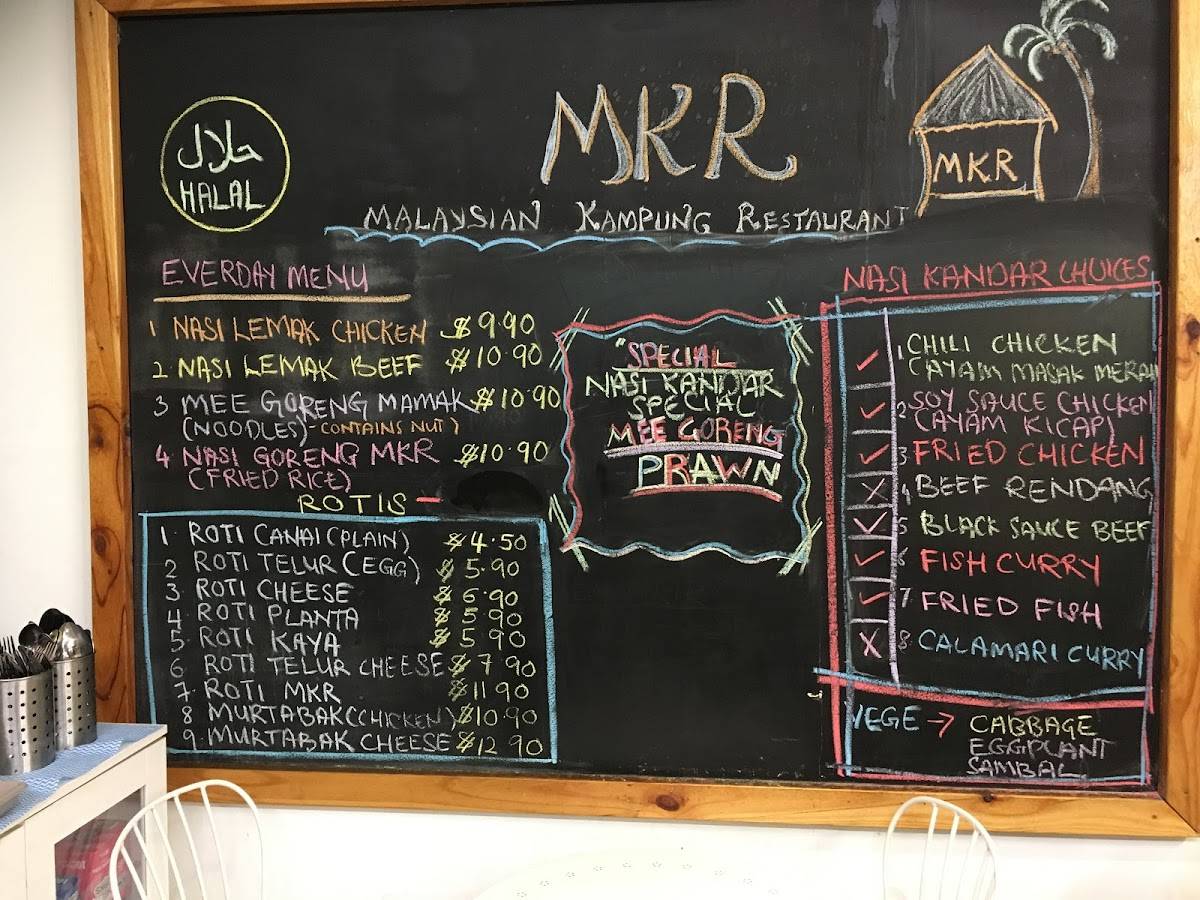 حلال
HALAL
MKR
MKR
MALAYSIAN KAMPUNG RESTAURANT
EVERDAY MENU
1 NASI LEMAK CHICKEN $9.90
2. NASI LEMAK BEEF $10.90
3 MEE GORENG MAMAK $10.90
(NOODLES) - CONTAINS NUT)
4. NASI GORENG MKR $10.90
(FRIED RICE)
ROTIS -
1. ROTI CANAI (PLAIN) $4.50
2 ROTI TELUR (EGG) $5.90
3. ROTI CHEESE $6.90
4 ROTI PLANTA $5.90
5. ROTI KAYA $5.90
6 ROTI TELUR CHEESE $7.90
7 ROTI MKR $11.90
8 MURTABAK (CHICKEN) $10.90
9. MURTABAK CHEESE $12.90
"SPECIAL
NASI KANDAR
SPECIAL
MEE GORENG
PRAWN
NASI KANDAR CHOICES
✓ 1. CHILI CHICKEN
(AYAM MASAK MERAH
✓ 2. SOY SAUCE CHICKEN
(AYAM KICAP)
✓ 3 FRIED CHICKEN
X 4 BEEF RENDANG
✓ 5 BLACK SAUCE BEEF
✓ 6 FISH CURRY
✓ 7 FRIED FISH
X 8 CALAMARI CURRY
VEGE → CABBAGE
EGGPLANT
SAMBAL